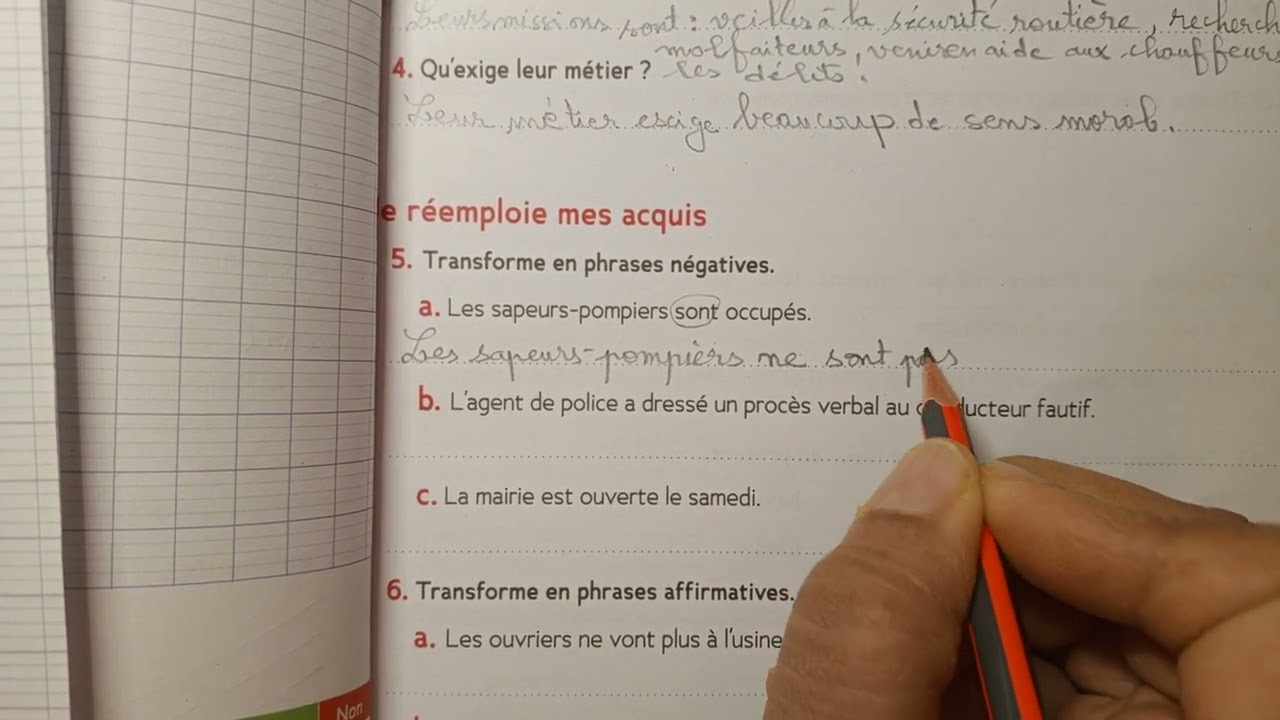 Leurs missions sont : veiller à la sécurité routière, recherch
molfaiteurs, venir en aide aux chauffeurs
4. Qu'exige leur métier ? les délits.
Leur métier escige beaucoup de sens morob.
e réemploie mes acquis
5. Transforme en phrases négatives.
a. Les sapeurs-pompiers sont occupés.
Les sapeurs-pompiers ne sont pas
b. L'agent de police a dressé un procès verbal au ducteur fautif.
c. La mairie est ouverte le samedi.
6. Transforme en phrases affirmatives.
a. Les ouvriers ne vont plus à l'usine
Non